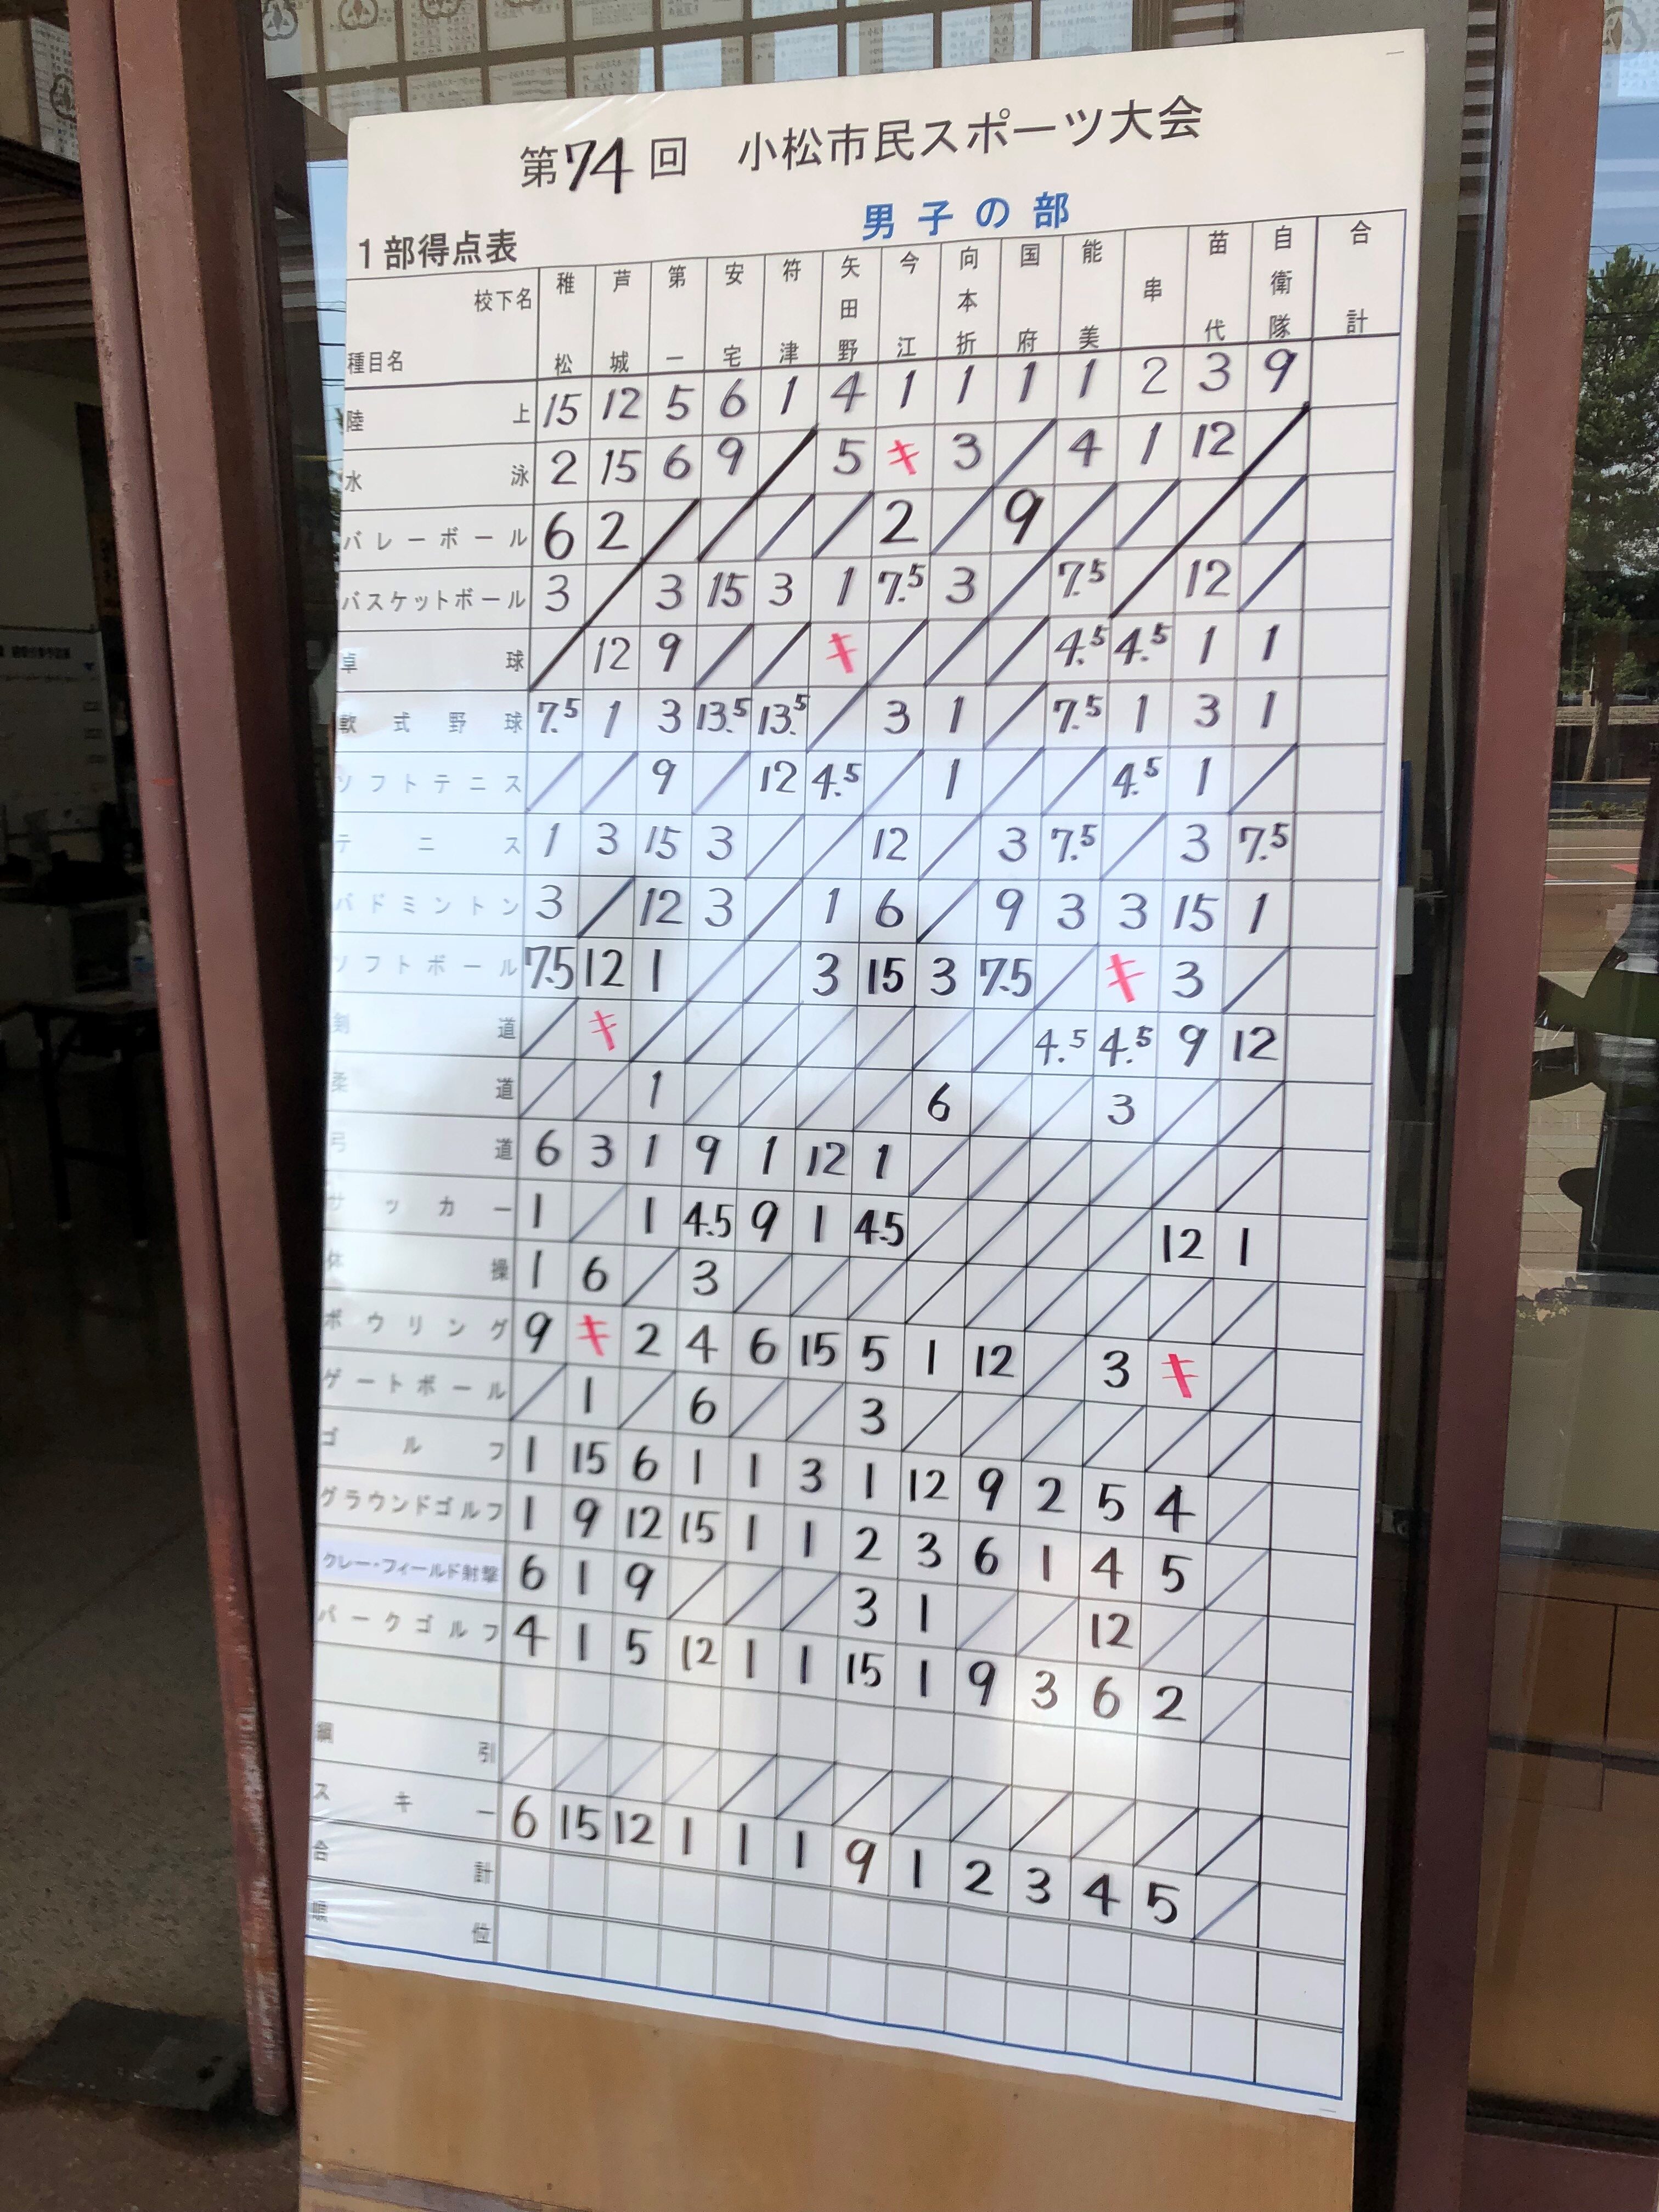 第74回 小松市民スポーツ大会
男子の部
1部得点表
校下名 種目名 稚松 芦城 第一 安宅 符津 矢田野 今江 向本折 国府 能美 串 苗代 自衛隊 合計
陸上 15 12 5 6 1 4 1 1 1 1 2 3 9
水泳 2 15 6 9 / 5 キ 3 / 4 1 12 /
バレーボール 6 2 / / / / 2 / 9 / / / /
バスケットボール 3 / 3 15 3 1 7.5 3 / 7.5 / 12 /
卓球 / 12 9 / / キ / / / 4.5 4.5 1 1
軟式野球 7.5 1 3 13.5 13.5 / 3 1 / 7.5 1 3 1
ソフトテニス / / 9 / 12 4.5 / 1 / / 4.5 1 /
テニス 1 3 15 3 / / 12 / 3 7.5 / 3 7.5
バドミントン 3 / 12 3 / 1 6 / 9 3 3 15 1
ソフトボール 7.5 12 1 / / 3 15 3 7.5 / キ 3 /
剣道 / キ / / / / / / / 4.5 4.5 9 12
柔道 / / 1 / / / / 6 / / 3 / /
弓道 6 3 1 9 1 12 1 / / / / / /
サッカー 1 / 1 4.5 9 1 4.5 / / / / 12 1
体操 1 6 / 3 / / / / / / / / /
ボウリング 9 キ 2 4 6 15 5 1 12 / 3 キ /
ゲートボール / 1 / 6 / / 3 / / / / / /
ゴルフ 1 15 6 1 1 3 1 12 9 2 5 4 /
グラウンドゴルフ 1 9 12 15 1 1 2 3 6 1 4 5 /
クレー・フィールド射撃 6 1 9 / / / 3 1 / / 12 / /
パークゴルフ 4 1 5 12 1 1 15 1 9 3 6 2 /
綱引 / / / / / / / / / / / / /
スキー 6 15 12 1 1 1 9 1 2 3 4 5 /
合計
順位